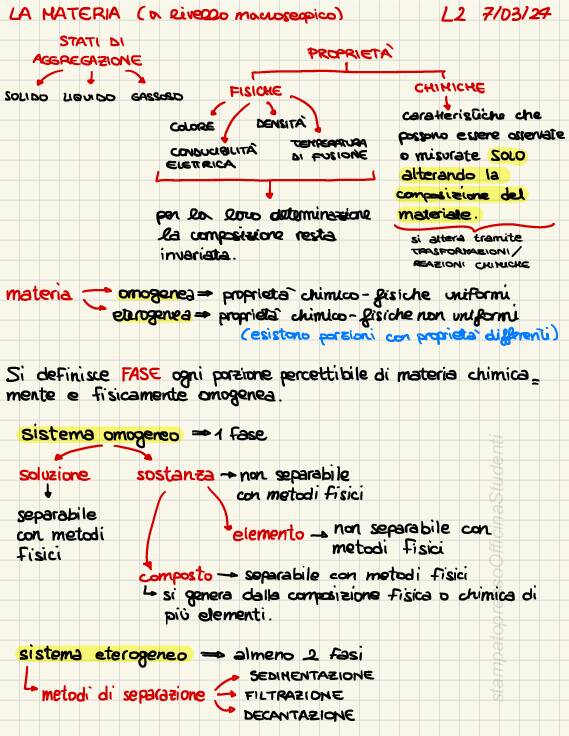 LA MATERIA (a livello macroscopico)
L2 7/03/24
STATI DI
AGGREGAZIONE
SOLIDO LIQUIDO GASSOSO
PROPRIETÀ
FISICHE
COLORE
DENSITÀ
CONDUCIBILITÀ
ELETTRICA
TEMPERATURA
DI FUSIONE
per la loro determinazione
la composizione resta
invariata.
CHIMICHE
caratteristiche che
possono essere osservate
o misurate SOLO
alterando la
composizione del
materiale.
si altera tramite
TRASFORMAZIONI/
REAZIONI CHIMICHE
materia → omogenea ⇒ proprietà chimico-fisiche uniformi
→ eterogenea ⇒ proprietà chimico-fisiche non uniformi
(esistono porzioni con proprietà differenti)
Si definisce FASE ogni porzione percettibile di materia chimica=
mente e fisicamente omogenea.
sistema omogeneo ⇒ 1 fase
soluzione
separabile
con metodi
fisici
sostanza → non separabile
con metodi fisici
elemento → non separabile con
metodi fisici
composto → separabile con metodi fisici
↳ si genera dalla composizione fisica o chimica di
più elementi.
sistema eterogeneo ⇒ almeno 2 fasi
↳ metodi di separazione
→ SEDIMENTAZIONE
→ FILTRAZIONE
→ DECANTAZIONE
stampatopressoOfficinaStudenti